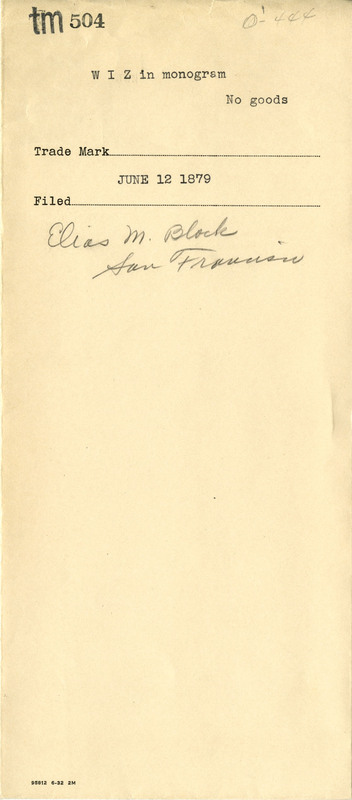 tm 504
O-444
W I Z in monogram
No goods
Trade Mark
JUNE 12 1879
Filed
Elias M. Block
San Francisco
98812 6-32 2M